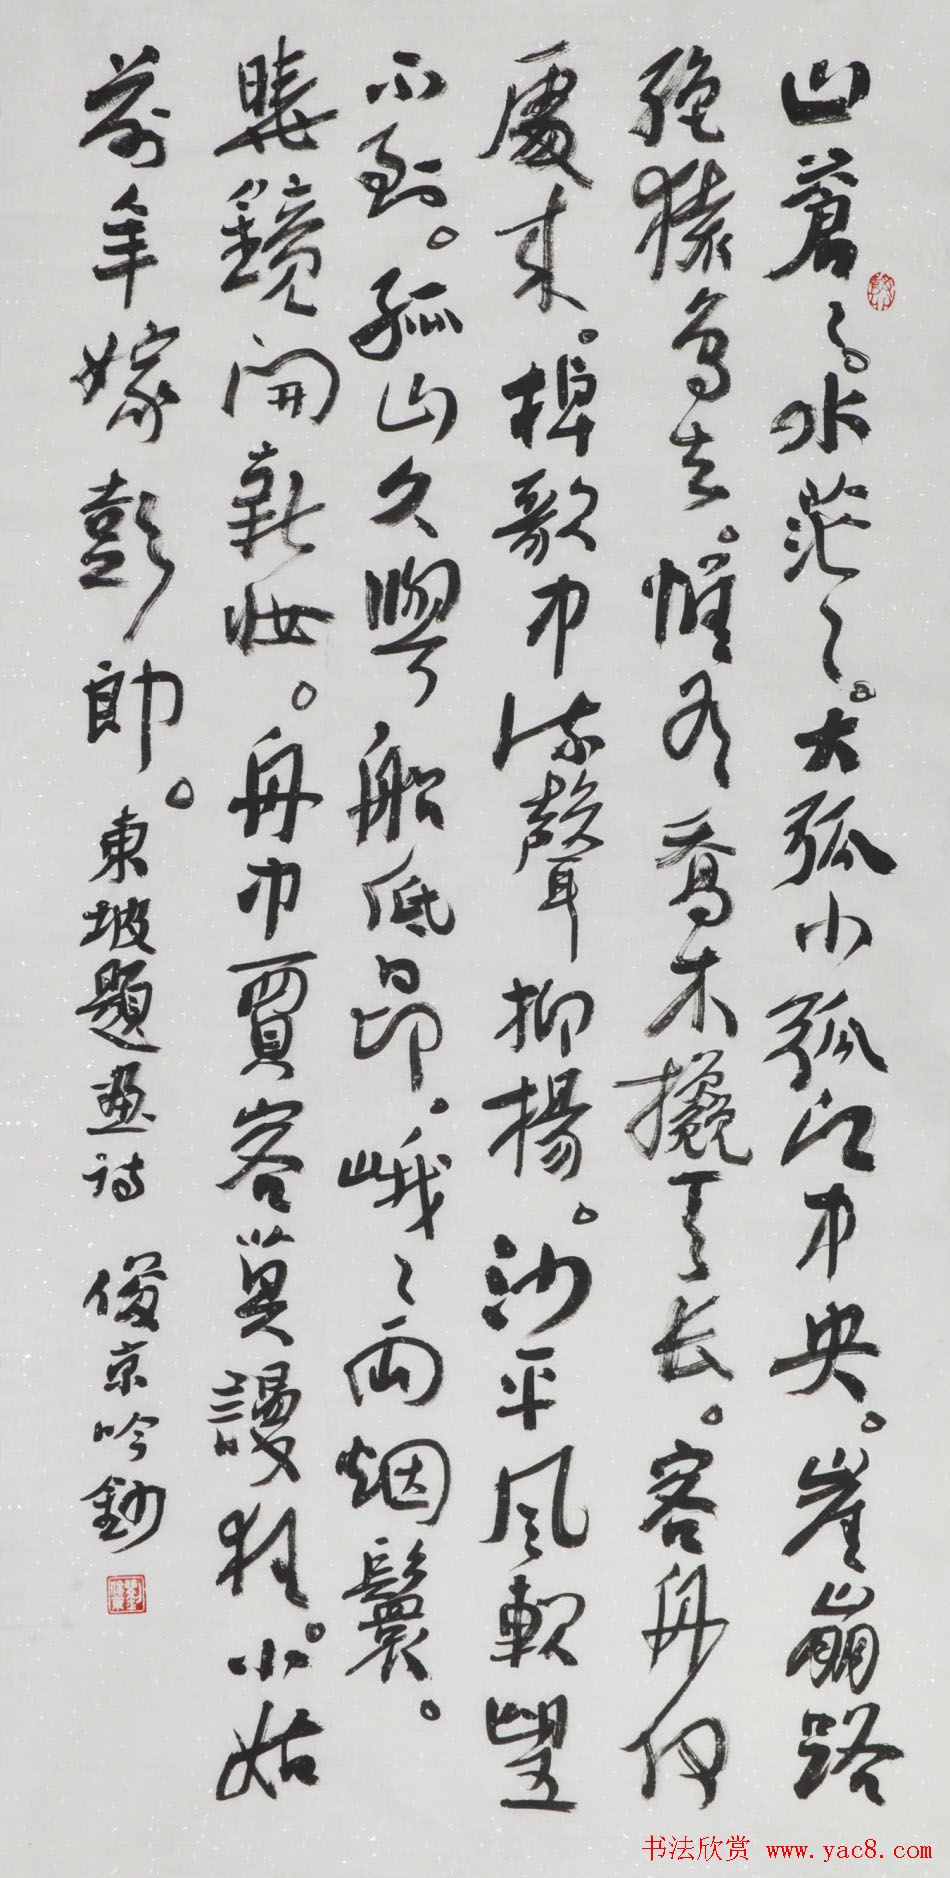 山蒼々。水茫々。大孤小孤江中央。崖崩路
絕猿鳥去。惟有喬木攙天长。客舟何
處来。棹歌中流聲抑揚。沙平風軟望
不到。孤山久與船低昂。峨々兩烟鬟。
曉鏡開新妝。舟中賈客莫謾狂。小姑
前年嫁彭郎。東坡題畫詩 俊京吟鈔
书法欣赏 www.yac8.com